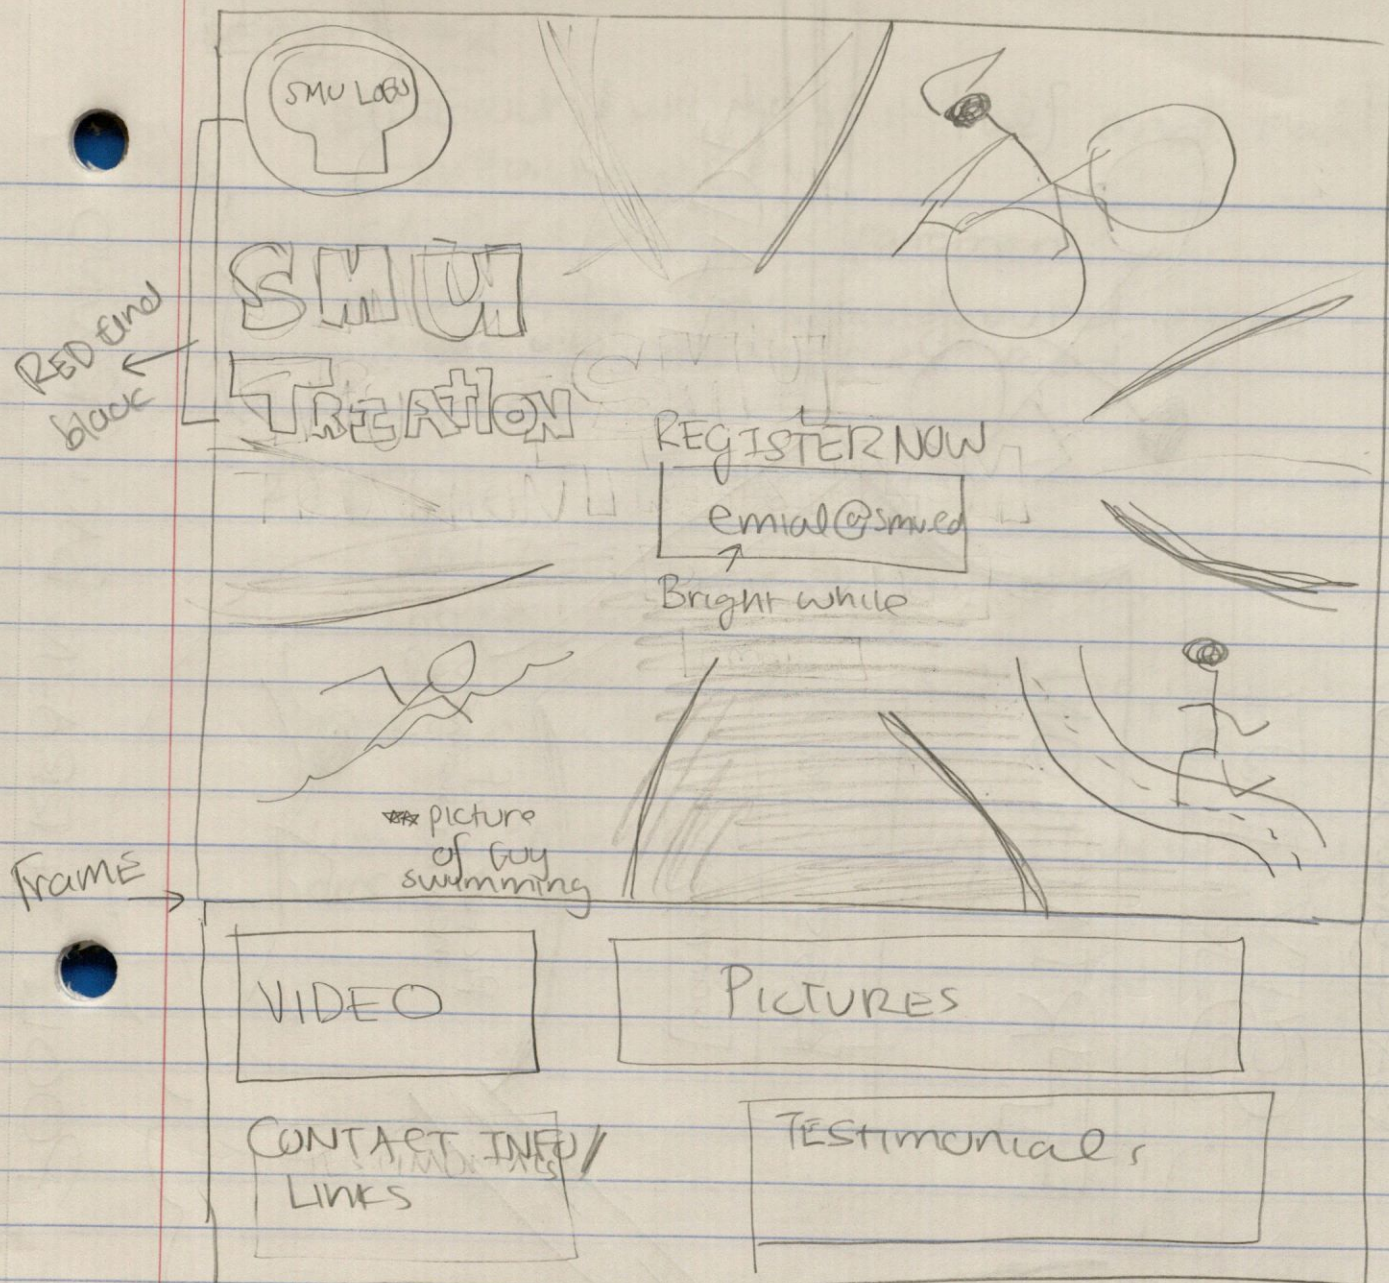 SMU LOGO
SMU
TRIATlON
RED and
black
REGISTER NOW
emial@smu.ed
Bright while
picture
of Guy
swimming
Frame
VIDEO
PICTURES
CONTACT INFO/
LINKS
TESTimonials